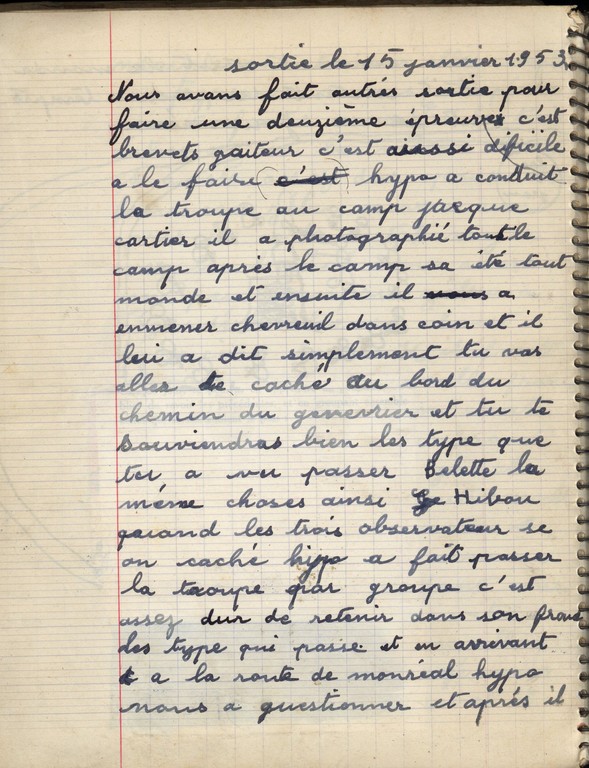 sortie le 15 janvier 1953
Nous avans fait autrés sortie pour
faire une deuzième épreuves c'est
brevets gaiteur c'est aussi dificile
a le faire c'est hypo a conduit
la troupe au camp jacque
cartier il a photographié tout le
camp aprés le camp sa été tout
monde et ensuite il vous a
enmener chevreuil dans coin et il
lui a dit simplement tu vas
aller te caché au bord du
chemin du genevrier et tu te
souviendras bien les type que
tu a vu passer Belette la
méme choses ainsi Hibou
quand les trois observateur se
on caché hypo a fait passer
la troupe par groupe c'est
assez dur de retenir dans son
les type qui passe et en arrivant
a la route de monréal hypo
nous a questionner et aprés il